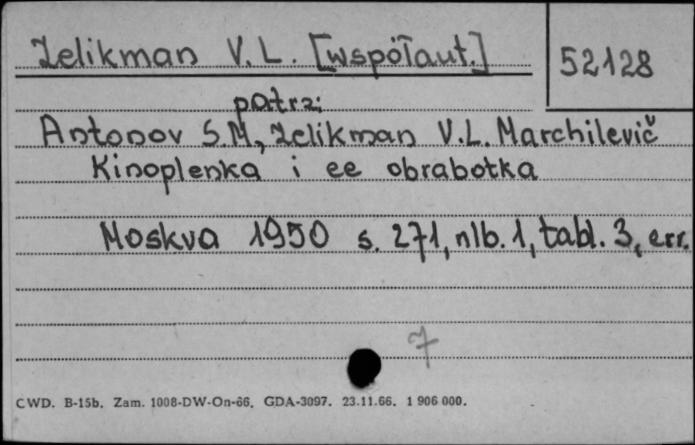 Zelikman V.L. [współaut.]
52128
patrz:
Antonov S.M, Zelikman V.L. Marchilevič
Kinoplenka i ee obrabotka
Moskva 1950 s. 271, nlb. 1, tabl. 3, err.
7
CWD. B-15b. Zam. 1008-DW-On-66. GDA-3097. 23.11.66. 1 906 000.